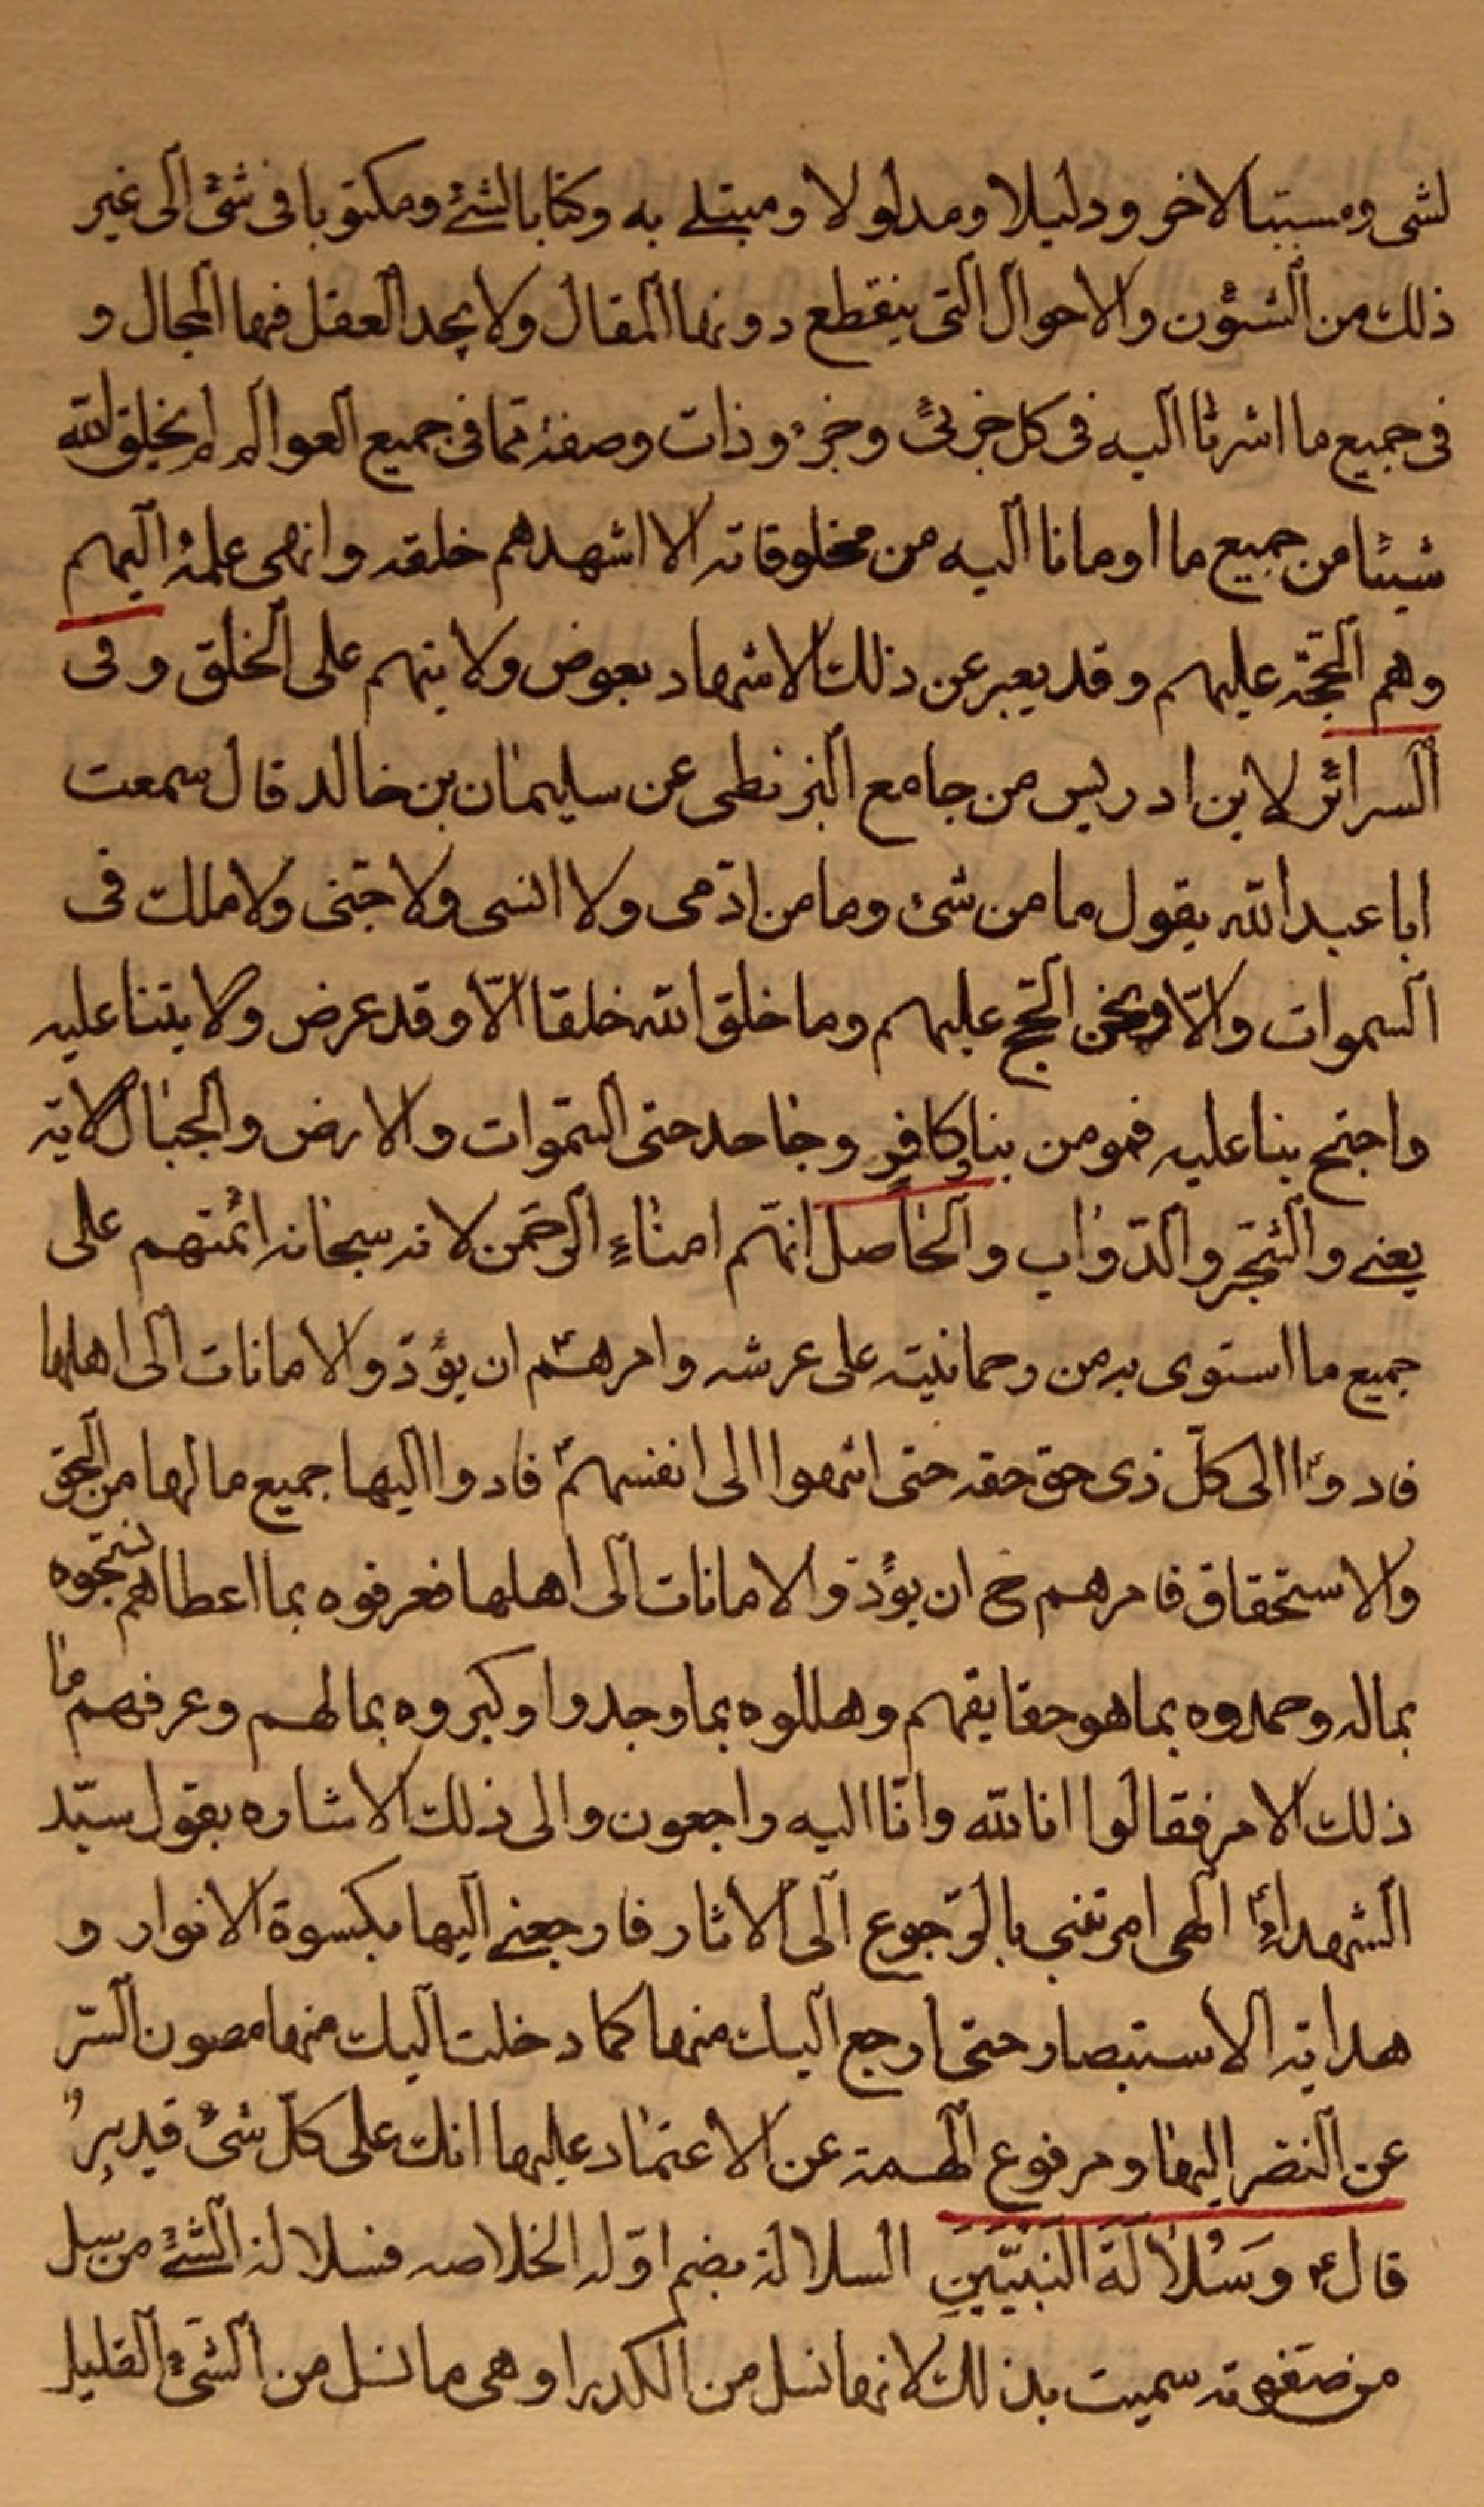 لشئ ومسببا لاخر ودليلا ومدلولا ومبتلے به وكتابا لشئ ومكتوبا فى شئ الى غير
ذلك من الشئون والاحوال التى ينقطع دونها المقال ولا يجد العقل فيها المجال و
فى جميع ما اشرنا اليه فى كل جزئى وجزء وذات وصفة مما فى جميع العوالم لم يخلق الله
شيئا من جميع ما اومانا اليه من مخلوقاته الا اشهدهم خلقه وانهى علمه اليهم
وهم الحجة عليهم وقد يعبر عن ذلك الاشهاد بعرض ولايتهم على الخلق وفى
السرائر لابن ادريس من جامع البزنطى عن سليمان بن خالد قال سمعت
ابا عبد الله يقول ما من شئ وما من ادمى ولا انسى ولا جنى ولا ملك فى
السموات والا ونحن الحجج عليهم وما خلق الله خلقا الا وقد عرض ولايتنا عليه
واحتج بنا عليه فمومن بنا وكافر وجاحد حتى السموات والارض والجبال الاية
يعنے والشجر والدواب والحاصل انهم امناء الرحمن لانه سبحانه ائمنهم على
جميع ما استوى به من رحمانيته على عرشه وامرهم ان يؤدوا الامانات الى اهلها
فادوا الى كل ذى حق حقه حتى انتهوا الى انفسهم فادوا اليها جميع ما لها من الحق
والاستحقاق فامرهم ح ان يؤدوا الامانات الى اهلها فعرفوه بما اعطاهم فسبحوه
بما له وحمدوه بما هو حقايقهم وهللوه بما وجدوا وكبروه بما لهم وعرفهم ما
ذلك الامر فقالوا انا لله وانا اليه راجعون والى ذلك الاشاره بقول سيد
الشهداء الهى امرتنى بالرجوع الى الاثار فارجعنے اليها بكسوة الانوار و
هداية الاستبصار حتى ارجع اليك منها كما دخلت اليك منها مصون السر
عن النضر اليها ومرفوع الهمة عن الاعتماد عليها انك على كل شئ قدير
قال ع وَسُلالَةَ النَبِيّينَ السلالة بضم اوله الخلاصه فسلالة الشئ من سل
من صفوته سميت بذلك لانها تسل من الكدر او هى ما انسل من الشئ القليل